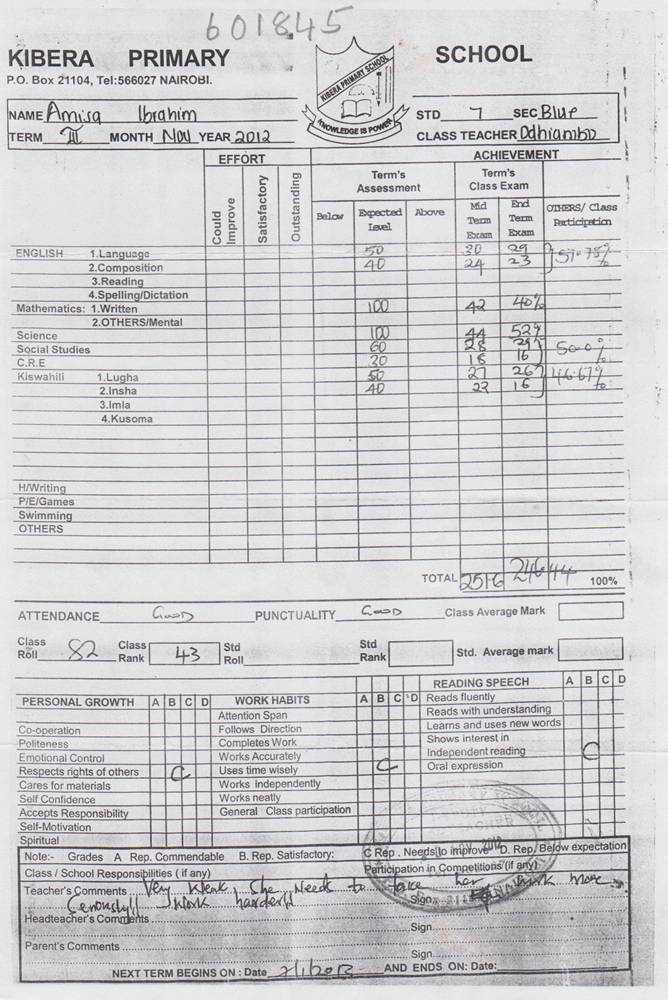 601845
KIBERA PRIMARY SCHOOL
P.O. Box 21104, Tel:566027 NAIROBI.
KIBERA PRIMARY SCHOOL
KNOWLEDGE IS POWER
NAME Amisa Ibrahim STD 7 SEC Blue
TERM III MONTH Nov YEAR 2012 CLASS TEACHER Odhiambo
EFFORT ACHIEVEMENT
Could Improve Satisfactory Outstanding
Term's Assessment Term's Class Exam
Below Expected Level Above Mid Term Exam End Term Exam OTHERS/ Class Participation
ENGLISH 1.Language 50 30 29
2.Composition 40 24 23 57.78%
3.Reading
4.Spelling/Dictation
Mathematics: 1.Written 100 42 40%
2.OTHERS/Mental
Science 100 44 52%
Social Studies 60 28 29
C.R.E 30 18 16 50.0%
Kiswahili 1.Lugha 50 27 26
2.Insha 40 22 16 46.67%
3.Imla
4.Kusoma
H/Writing
P/E/Games
Swimming
OTHERS
TOTAL 251.6 246.44 100%
ATTENDANCE GOOD PUNCTUALITY GOOD Class Average Mark
Class Roll 82 Class Rank 43 Std Roll Std Rank Std. Average mark
PERSONAL GROWTH A B C D WORK HABITS A B C D READING SPEECH A B C D
Attention Span Reads fluently
Co-operation Follows Direction Reads with understanding
Politeness Completes Work Learns and uses new words
Emotional Control Works Accurately Shows interest in
Respects rights of others C Uses time wisely C Independent reading C
Cares for materials Works independently Oral expression
Self Confidence Works neatly
Accepts Responsibility General Class participation
Self-Motivation
Spiritual
Note:- Grades A Rep. Commendable B. Rep. Satisfactory: C Rep. Needs to improve D. Rep/ Below expectation
Class / School Responsibilities ( if any) Participation in Competitions (if any)
Teacher's Comments Very Weak, She Needs to take her work more
Seriously!! Work harder!! Sign
Headteacher's Comments
Sign
Parent's Comments
Sign
NEXT TERM BEGINS ON : Date 7/1/2013 AND ENDS ON: Date: